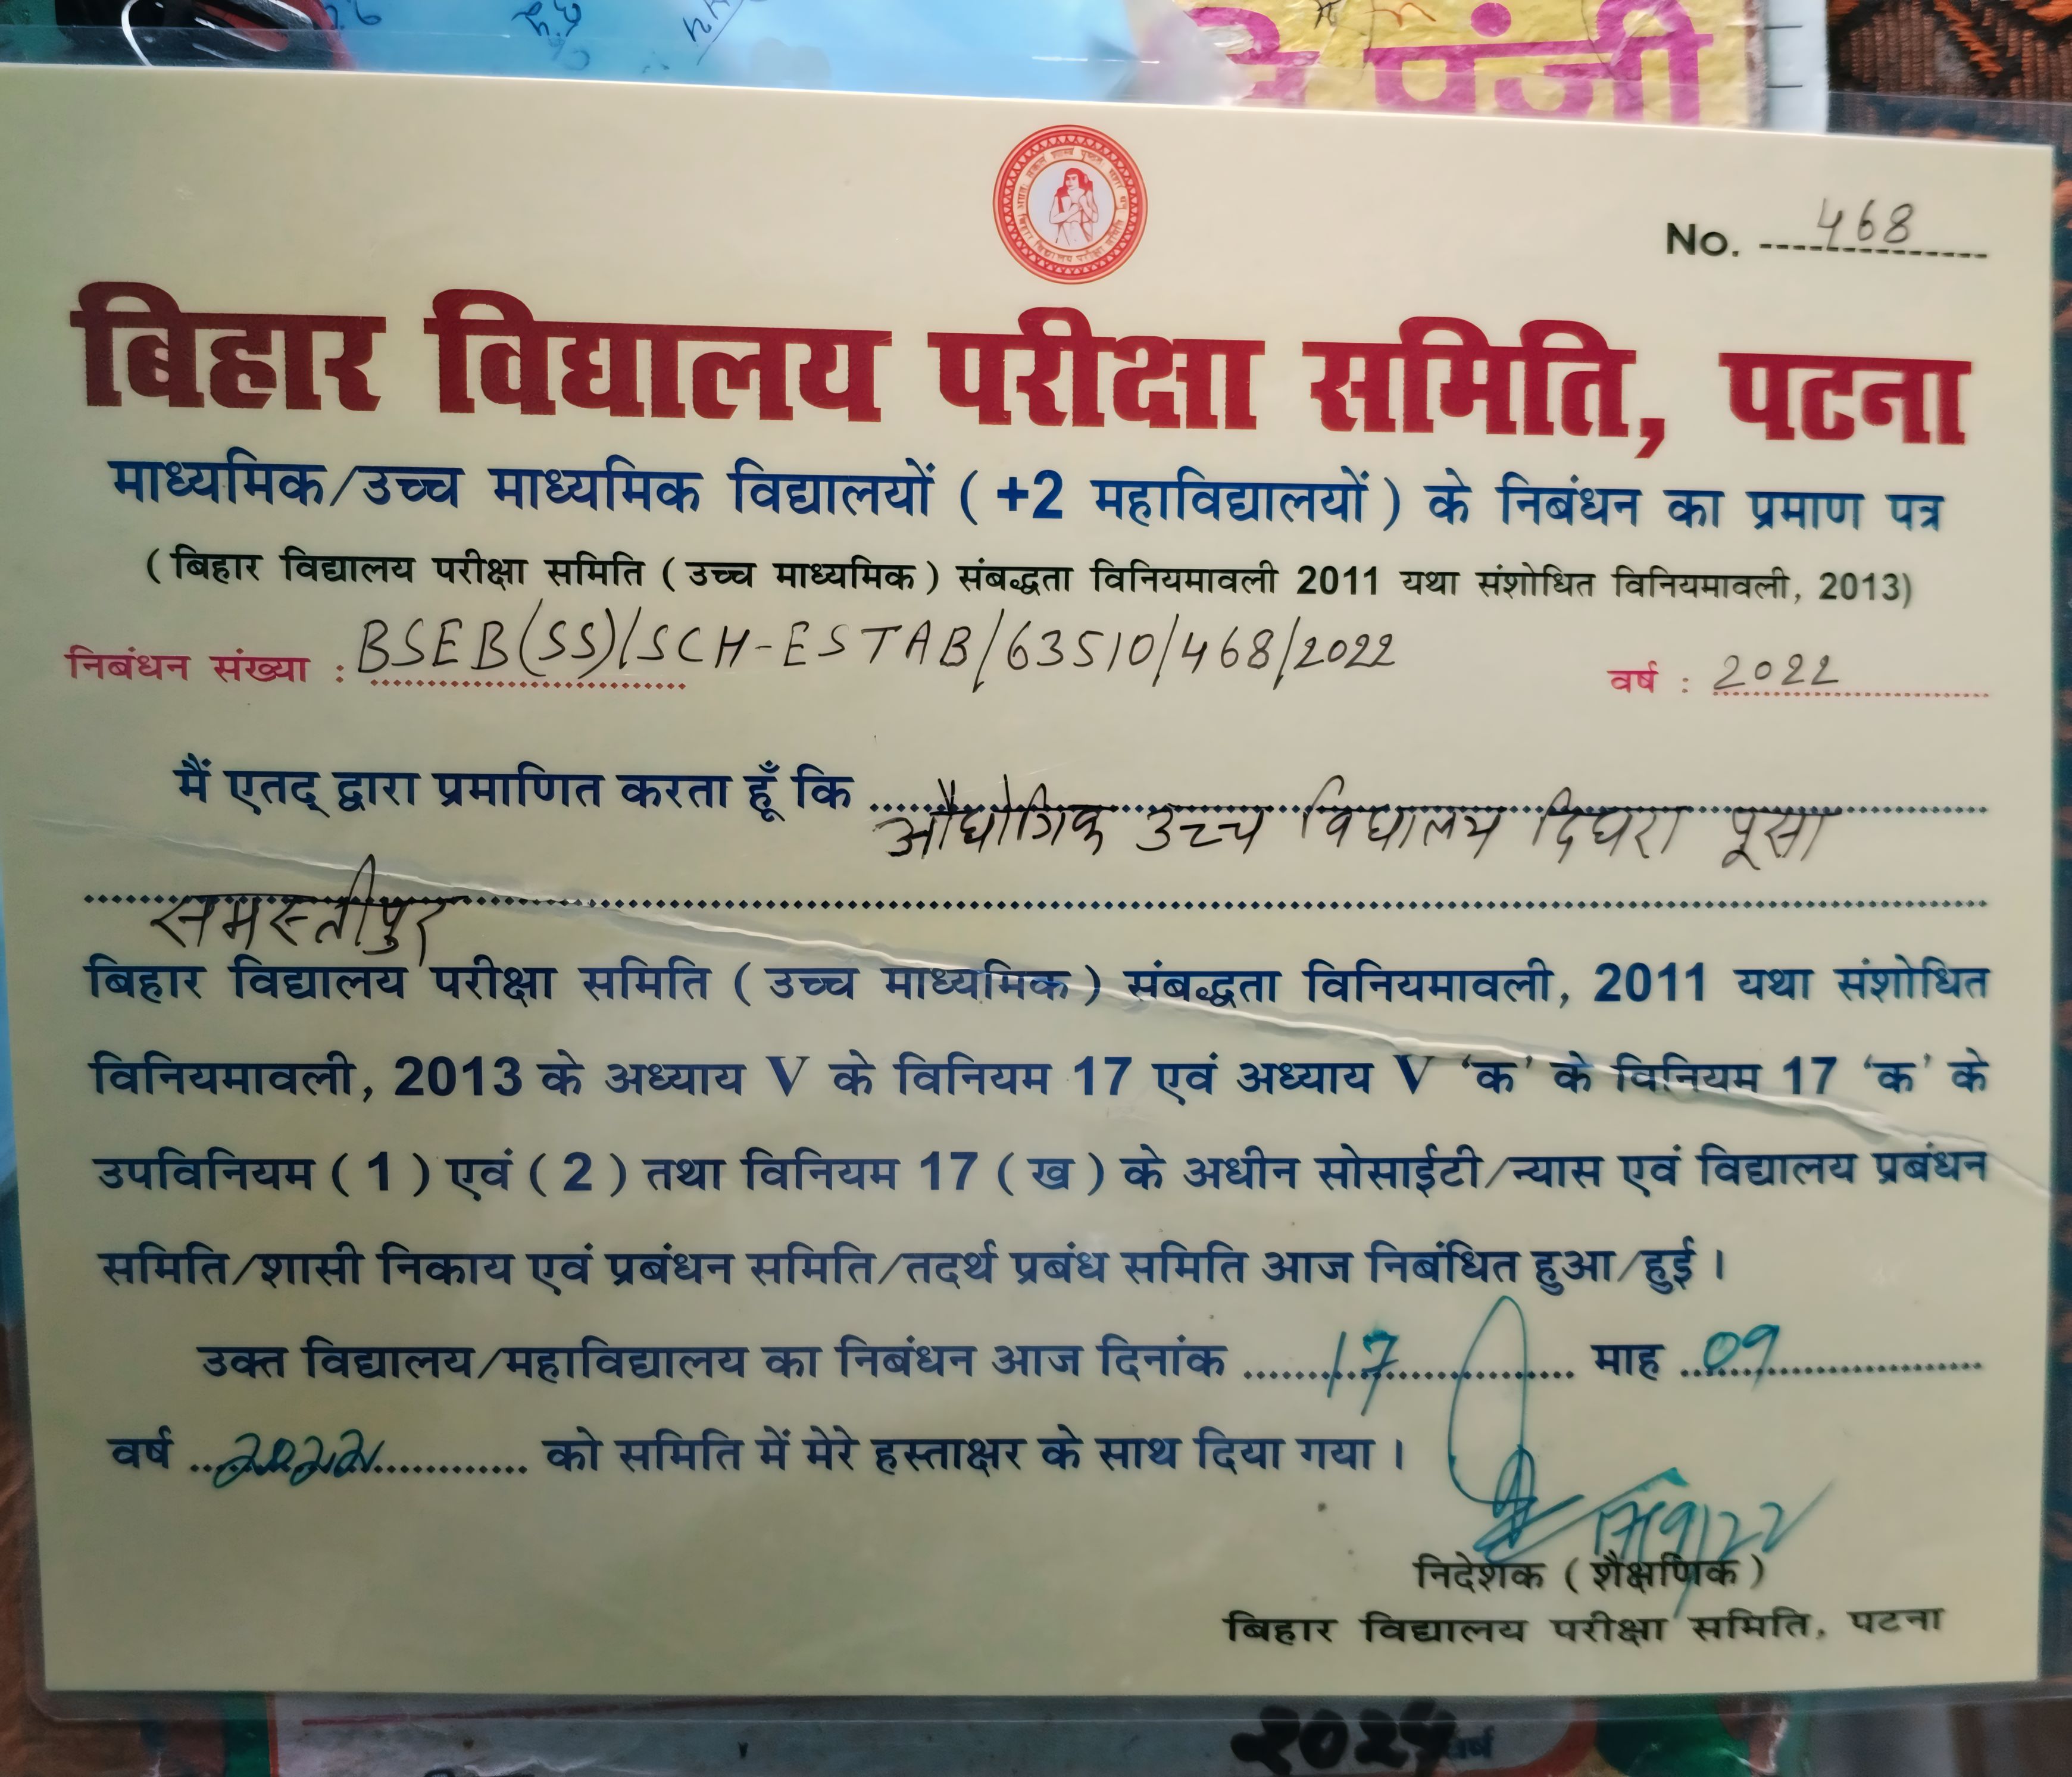 पंजी
No. 468
बिहार विद्यालय परीक्षा समिति, पटना
माध्यमिक/उच्च माध्यमिक विद्यालयों ( +2 महाविद्यालयों ) के निबंधन का प्रमाण पत्र
( बिहार विद्यालय परीक्षा समिति ( उच्च माध्यमिक ) संबद्धता विनियमावली 2011 यथा संशोधित विनियमावली, 2013)
निबंधन संख्या : BSEB(SS)/SCH-ESTAB/63510/468/2022 वर्ष : 2022
मैं एतद् द्वारा प्रमाणित करता हूँ कि औद्योगिक उच्च विद्यालय दिघरा पूसा
समस्तीपुर
बिहार विद्यालय परीक्षा समिति ( उच्च माध्यमिक ) संबद्धता विनियमावली, 2011 यथा संशोधित
विनियमावली, 2013 के अध्याय V के विनियम 17 एवं अध्याय V ‘क’ के विनियम 17 ‘क’ के
उपविनियम ( 1 ) एवं ( 2 ) तथा विनियम 17 ( ख ) के अधीन सोसाईटी/न्यास एवं विद्यालय प्रबंधन
समिति/शासी निकाय एवं प्रबंधन समिति/तदर्थ प्रबंध समिति आज निबंधित हुआ/हुई ।
उक्त विद्यालय/महाविद्यालय का निबंधन आज दिनांक 17 माह 09
वर्ष 2022 को समिति में मेरे हस्ताक्षर के साथ दिया गया ।
17/9/22
निदेशक ( शैक्षणिक )
बिहार विद्यालय परीक्षा समिति, पटना
2024